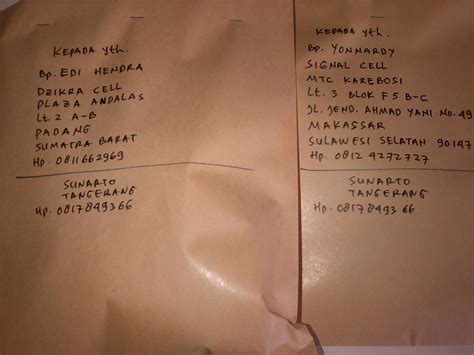 KEPADA yth.
Bp. EDI HENDRA
DZIKRA CELL
PLAZA ANDALAS
Lt. 2 A-B
PADANG
SUMATRA BARAT
Hp. 0811662969
SUNARTO
TANGERANG
Hp. 0817849366
KEPADA yth.
Bp. YONNARDY
SIGNAL CELL
MTC KAREBOSI
Lt. 3 BLOK F5 B-C
JL. JEND. AHMAD YANI No. 49
MAKASSAR
SULAWESI SELATAN 90147
Hp. 0812 4272727
SUNARTO
TANGERANG
Hp. 0817849366